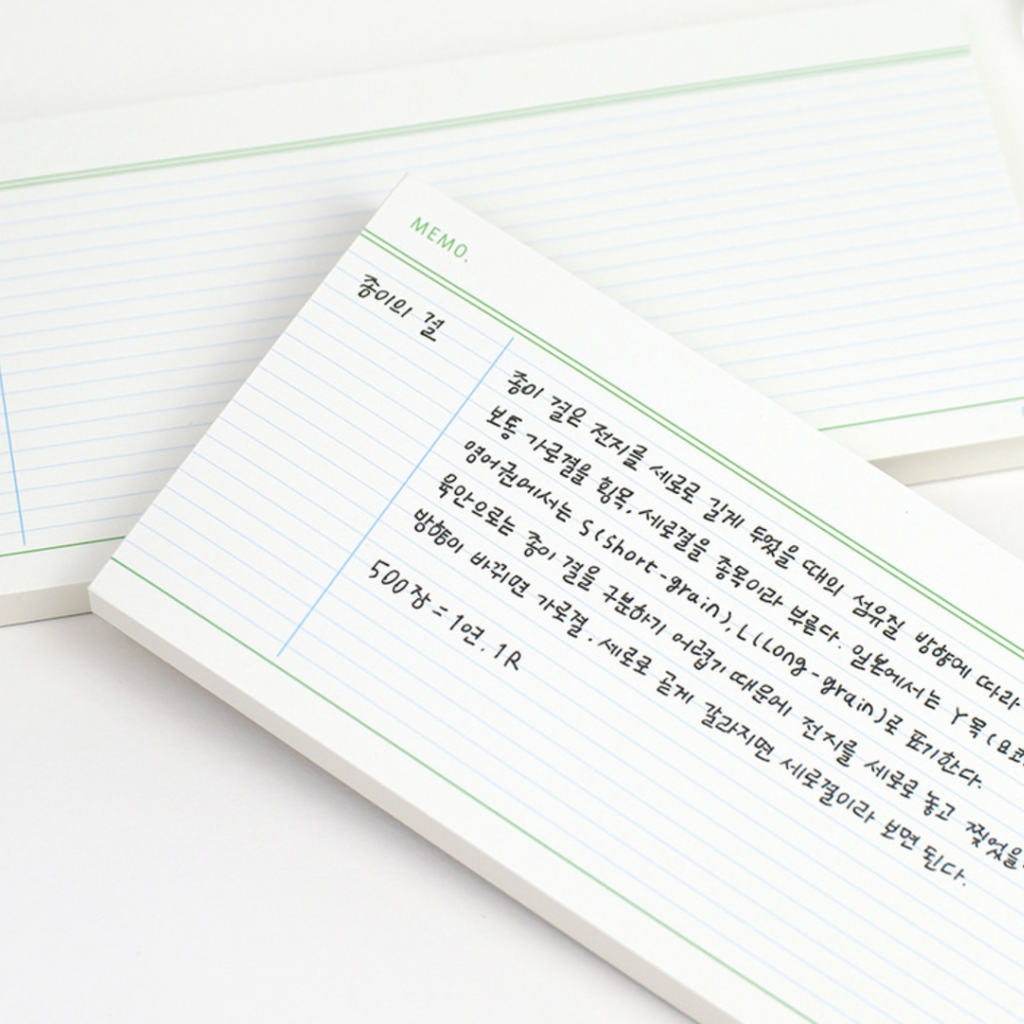 MEMO.
종이의 결
종이 결은 전지를 세로로 길게 두었을 때의 섬유질 방향에 따라
보통 가로결을 횡목, 세로결을 종목이라 부른다. 일본에서는 Y목(요코
영어권에서는 S(Short-grain), L(Long-grain)로 표기한다.
육안으로는 종이 결을 구분하기 어렵기 때문에 전지를 세로로 놓고 찢었을
방향이 바뀌면 가로결, 세로로 곧게 갈라지면 세로결이라 보면 된다.
500장 = 1연. 1R